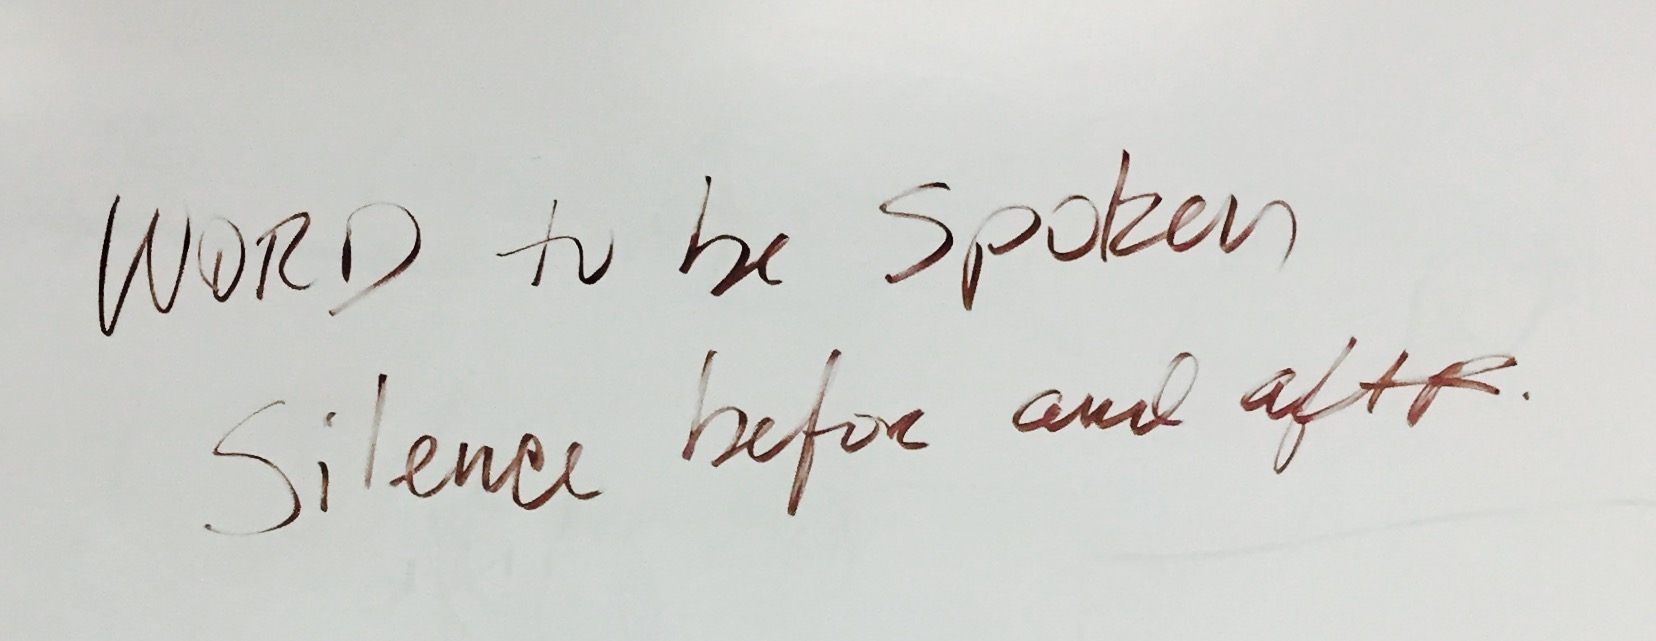 WORD to be Spoken
Silence before and after.